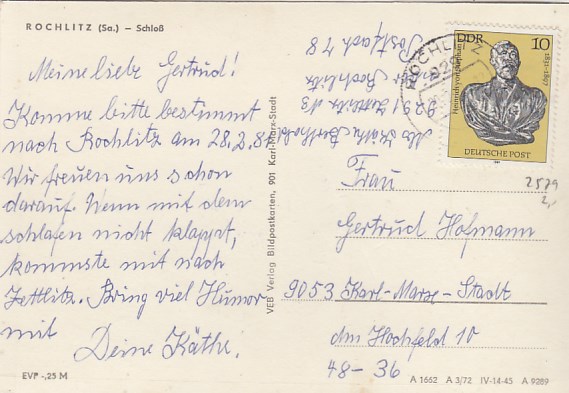 ROCHLITZ (Sa.) – Schloß
Meine liebe Gertrud!
Komme bitte bestimmt
nach Rochlitz am 28.2.81
Wir freuen uns schon
darauf. Wenn mit dem
schlafen nicht klappt,
kommste mit nach
Zettlitz. Bring viel Humor
mit
Deine Käthe.
EVP -,25 M
VEB Verlag Bildpostkarten, 901 Karl-Marx-Stadt
Käthe
9291 Zettlitz
Rochlitz
Postfach 78
ROCHLITZ
DDR 10
Heinrich von Stephan
1831-1897
DEUTSCHE POST
2579
2,-
Frau
Gertrud Hofmann
9053 Karl-Marx-Stadt
Am Hochfeld 10
48-36
A 1662 A 3/72 IV-14-45 A 9289